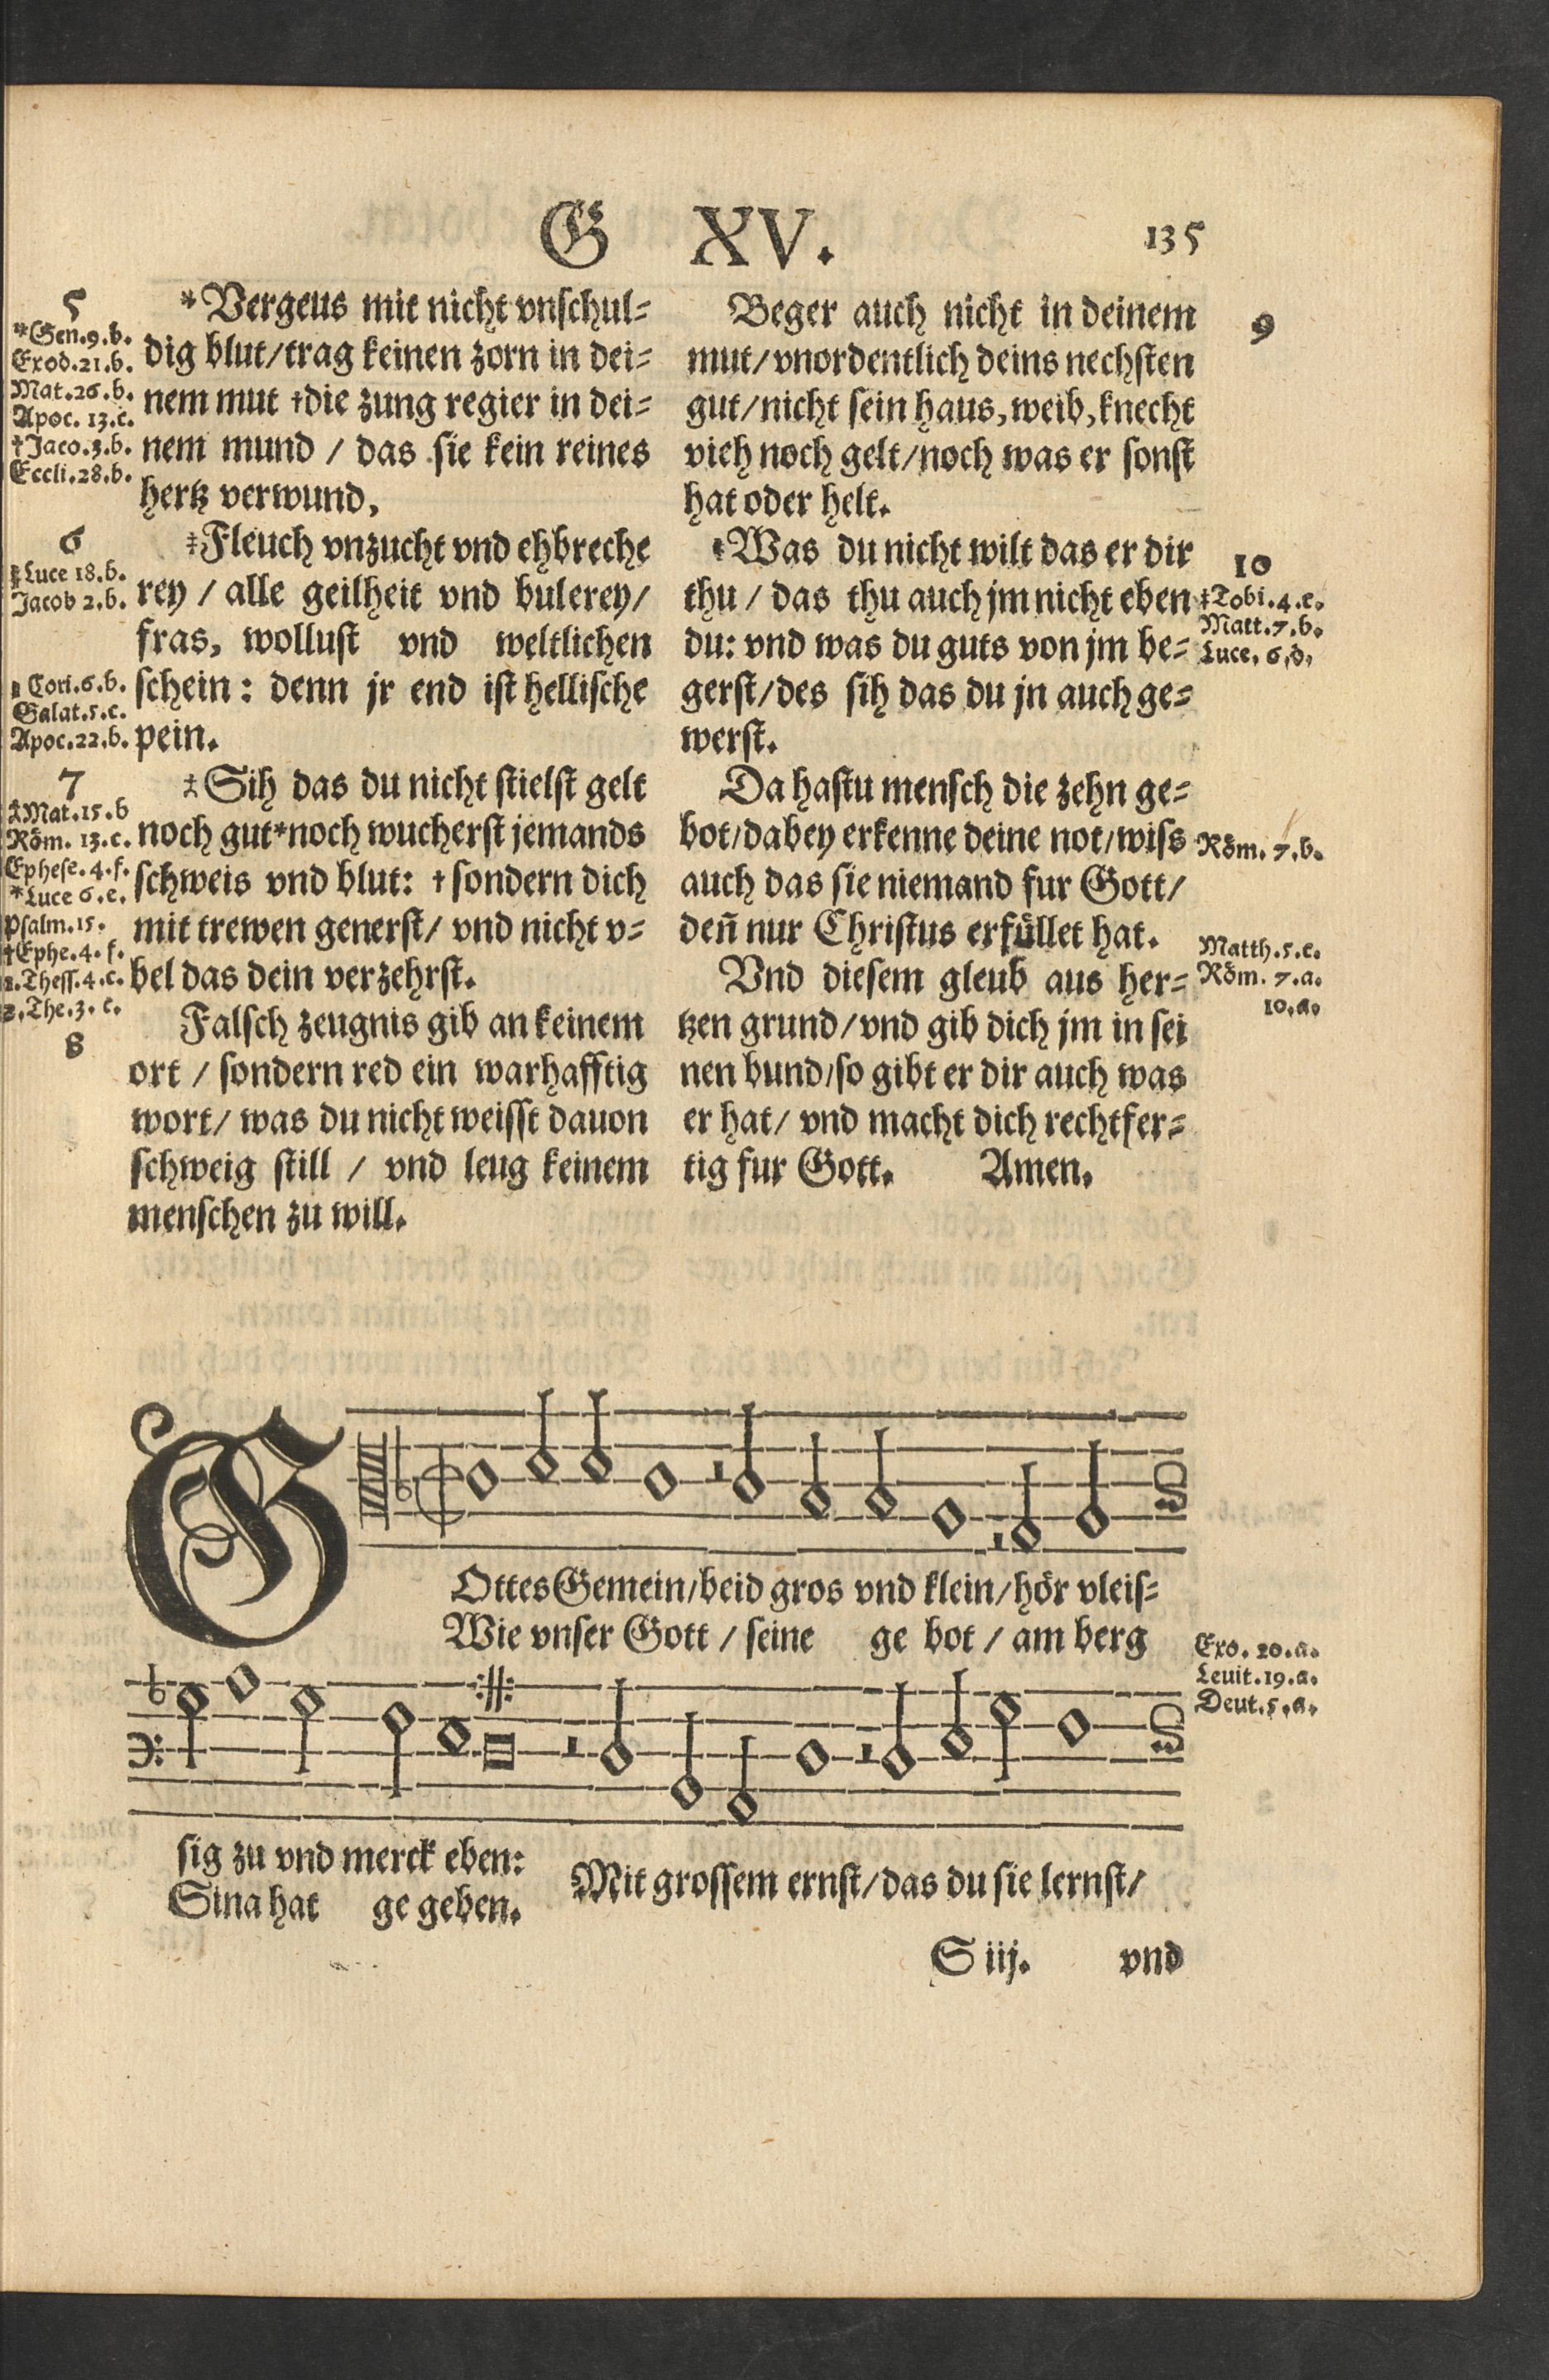 G XV. 135
5
*Gen.9.b.
Exod.21.b.
Mat.26.b.
Apoc. 13.c.
†Jaco.3.b.
Eccli.28.b.
*Vergeus mit nicht vnschul-
dig blut/trag keinen zorn in dei-
nem mut †die zung regier in dei-
nem mund / das sie kein reines
hertz verwund,
6
‡Luce 18.b.
Jacob 2.b.
Cori.6.b.
Galat.5.c.
Apoc.22.b.
‡Fleuch vnzucht vnd ehbreche
rey / alle geilheit vnd bulerey/
fras, wollust vnd weltlichen
schein: denn jr end ist hellische
pein.
7
‡Mat.15.b
Röm. 13.c.
Ephese.4.f.
*Luce 6.e.
Psalm.15.
†Ephe.4.f.
1.Thess.4.c.
2.The.3.c.
‡Sih das du nicht stielst gelt
noch gut*noch wucherst jemands
schweis vnd blut: †sondern dich
mit trewen generst/ vnd nicht v-
bel das dein verzehrst.
8
Falsch zeugnis gib an keinem
ort / sondern red ein warhafftig
wort/ was du nicht weisst dauon
schweig still / vnd leug keinem
menschen zu will.
9
Beger auch nicht in deinem
mut/vnordentlich deins nechsten
gut/nicht sein haus, weib, knecht
vieh noch gelt/noch was er sonst
hat oder helt.
10
‡Tobi.4.c.
Matt.7.b.
Luce. 6.d.
‡Was du nicht wilt das er dir
thu / das thu auch jm nicht eben
du: vnd was du guts von jm be-
gerst/des sih das du jn auch ge-
werst.
Da hastu mensch die zehn ge-
bot/dabey erkenne deine not/wiss
auch das sie niemand fur Gott/
deñ nur Christus erfüllet hat.
Röm. 7.b.
Matth.5.c.
Röm. 7.a.
10.a.
Vnd diesem gleub aus her-
tzen grund/vnd gib dich jm in sei
nen bund/so gibt er dir auch was
er hat/ vnd macht dich rechtfer-
tig fur Gott. Amen.
GOttes Gemein/beid gros vnd klein/hör vleis-
Wie vnser Gott / seine ge bot / am berg
Exo. 20.a.
Leuit.19.a.
Deut.5.a.
sig zu vnd merck eben:
Sina hat ge geben.
Mit grossem ernst/das du sie lernst/
S iij. vnd